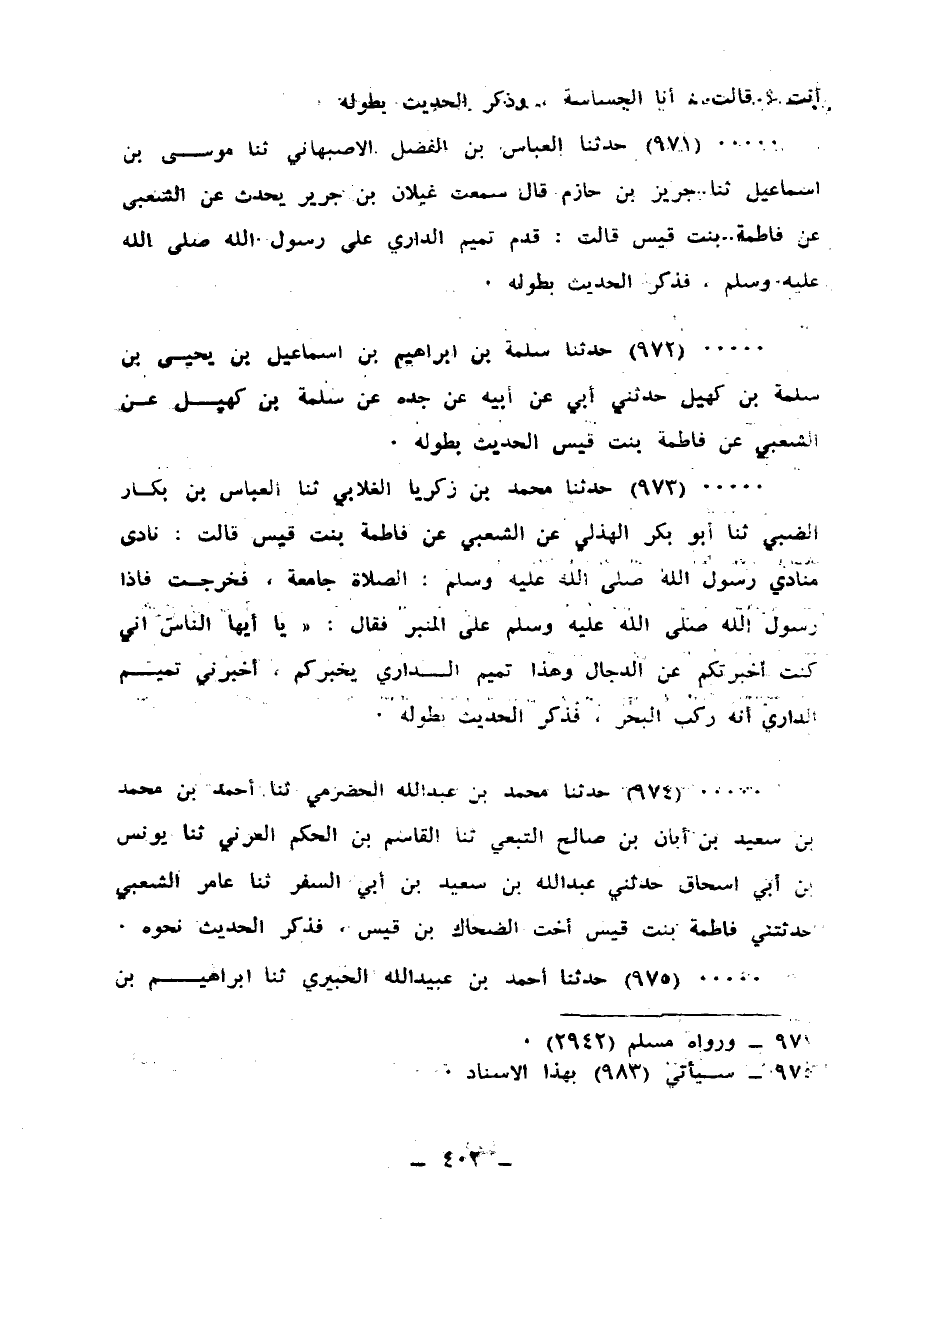 أنت ؟ قالت : أنا الجساسة ، وذكر الحديث بطوله .
..... (٩٧١) حدثنا العباس بن الفضل الاصبهاني ثنا موسى بن
اسماعيل ثنا جرير بن حازم قال سمعت غيلان بن جرير يحدث عن الشعبي
عن فاطمة بنت قيس قالت : قدم تميم الداري على رسول الله صلى الله
عليه وسلم ، فذكر الحديث بطوله .
..... (٩٧٢) حدثنا سلمة بن ابراهيم بن اسماعيل بن يحيى بن
سلمة بن كهيل حدثني أبي عن أبيه عن جده عن سلمة بن كهيل عن
الشعبي عن فاطمة بنت قيس الحديث بطوله .
..... (٩٧٣) حدثنا محمد بن زكريا الغلابي ثنا العباس بن بكار
الضبي ثنا أبو بكر الهذلي عن الشعبي عن فاطمة بنت قيس قالت : نادى
منادي رسول الله صلى الله عليه وسلم : الصلاة جامعة ، فخرجت فاذا
رسول الله صلى الله عليه وسلم على المنبر فقال : « يا أيها الناس اني
كنت أخبرتكم عن الدجال وهذا تميم الداري يخبركم ، أخبرني تميم
الداري أنه ركب البحر ، فذكر الحديث بطوله .
..... (٩٧٤) حدثنا محمد بن عبدالله الحضرمي ثنا أحمد بن محمد
بن سعيد بن أبان بن صالح التبعي ثنا القاسم بن الحكم العرني ثنا يونس
بن أبي اسحاق حدثني عبدالله بن سعيد بن أبي السفر ثنا عامر الشعبي
حدثتني فاطمة بنت قيس أخت الضحاك بن قيس ، فذكر الحديث نحوه .
..... (٩٧٥) حدثنا أحمد بن عبيدالله الجبيري ثنا ابراهيم بن
٩٧١ ـ ورواه مسلم (٢٩٤٢) .
ـ سيأتي (٩٨٣) بهذا الاسناد .
ـ ٤٠٢ ـ